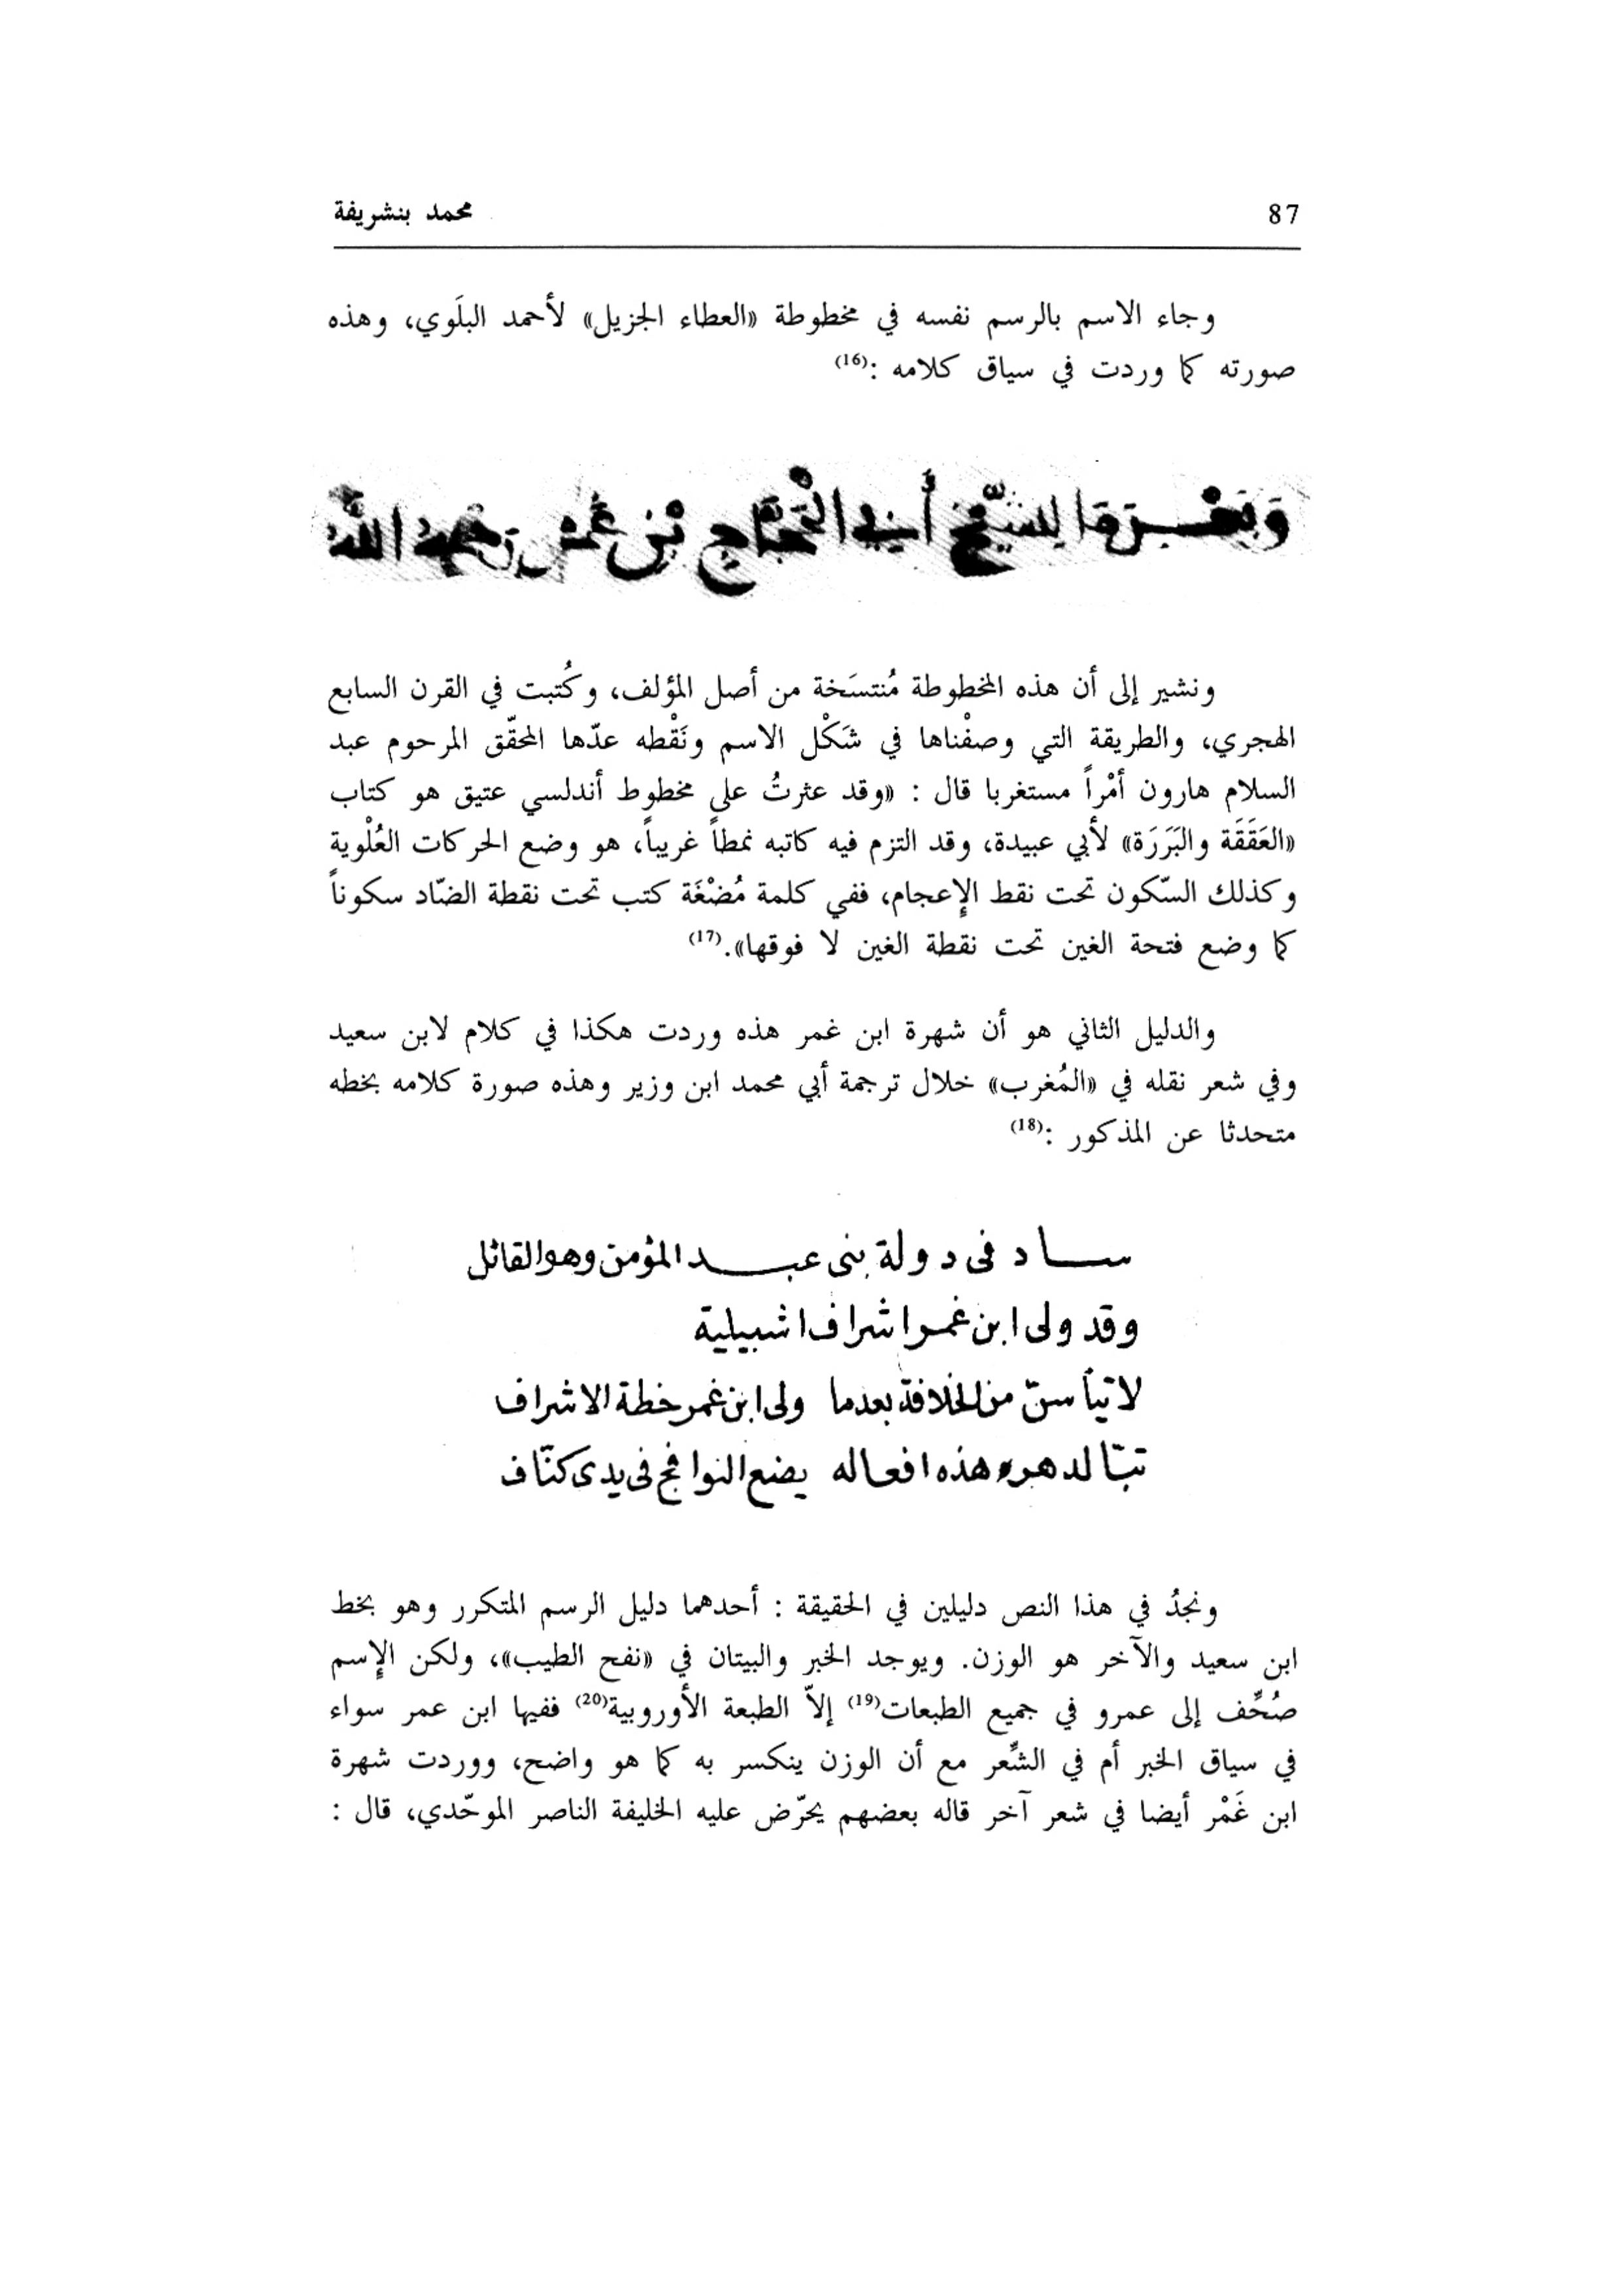 87
محمد بنشريفة
وجاء الاسم بالرسم نفسه في مخطوطة «العطاء الجزيل» لأحمد البلَوي، وهذه
صورته كما وردت في سياق كلامه :(16)
للشيخ أبي الحجاج بن غمر رحمه الله
ونشير إلى أن هذه المخطوطة مُنتسَخة من أصل المؤلف، وكُتبت في القرن السابع
الهجري، والطريقة التي وصفْناها في شَكْل الاسم ونَقْطه عدّها المحقّق المرحوم عبد
السلام هارون أمْراً مستغربا قال : «وقد عثرتُ على مخطوط أندلسي عتيق هو كتاب
«العَقَقَة والبَرَرَة» لأبي عبيدة، وقد التزم فيه كاتبه نمطاً غريباً، هو وضع الحركات العُلْوية
وكذلك السّكون تحت نقط الإعجام، ففي كلمة مُضْغَة كتب تحت نقطة الضّاد سكوناً
كما وضع فتحة الغين تحت نقطة الغين لا فوقها».(17)
والدليل الثاني هو أن شهرة ابن غمر هذه وردت هكذا في كلام لابن سعيد
وفي شعر نقله في «المُغرب» خلال ترجمة أبي محمد ابن وزير وهذه صورة كلامه بخطه
متحدثا عن المذكور :(18)
ساد فى دولة بنى عبد المؤمن وهو القائل
وقد ولى ابن غمر اشراف اشبيلية
لا تيأسنّ من الخلافة بعدما ولى ابن غمر خطة الاشراف
تبّا لدهر هذه افعاله يضع النوافج فى يدى كنّاف
ونجدُ في هذا النص دليلين في الحقيقة : أحدهما دليل الرسم المتكرر وهو بخط
ابن سعيد والآخر هو الوزن. ويوجد الخبر والبيتان في «نفح الطيب»، ولكن الإسم
صُحِّف إلى عمرو في جميع الطبعات(19) إلاّ الطبعة الأوروبية(20) ففيها ابن عمر سواء
في سياق الخبر أم في الشِّعر مع أن الوزن ينكسر به كما هو واضح، ووردت شهرة
ابن غَمْر أيضا في شعر آخر قاله بعضهم يحرّض عليه الخليفة الناصر الموحّدي، قال :